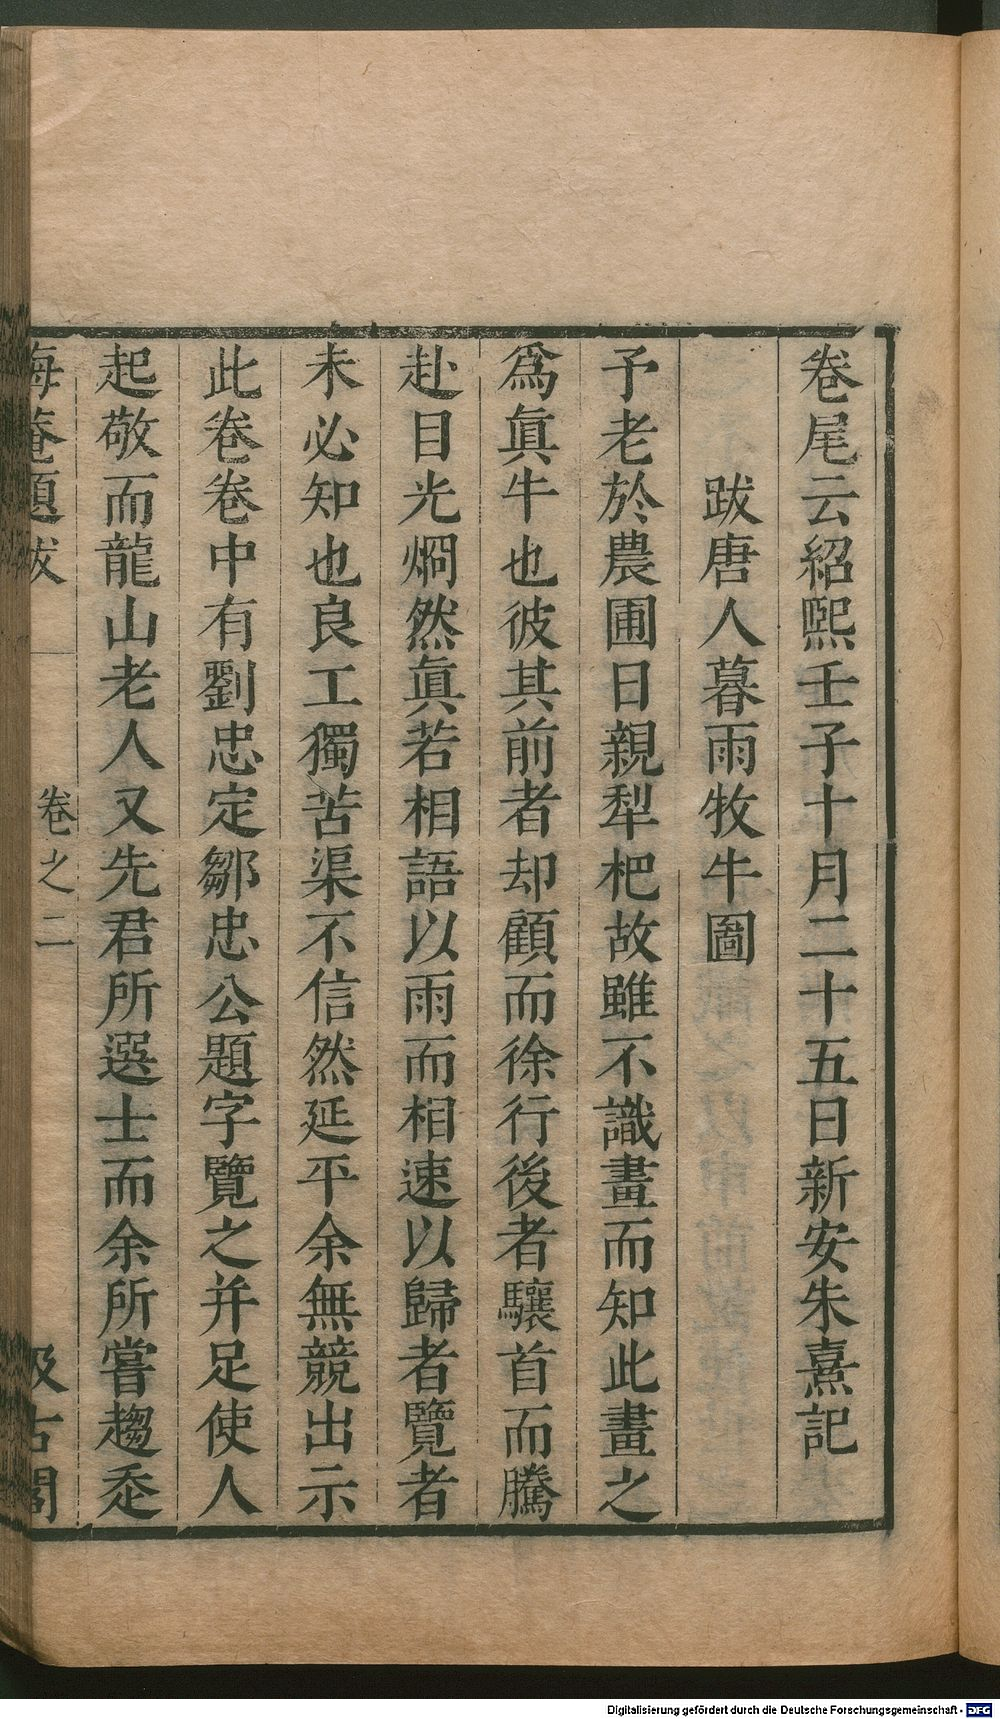 卷尾云紹熙壬子十月二十五日新安朱熹記
跋唐人暮雨牧牛圖
予老於農圃日親犁杷故雖不識畫而知此畫之
爲眞牛也彼其前者却顧而徐行後者驤首而騰
赴目光烱然眞若相語以雨而相速以歸者覽者
未必知也良工獨苦渠不信然延平余無競出示
此卷卷中有劉忠定鄒忠公題字覽之并足使人
起敬而龍山老人又先君所選士而余所嘗趨忝
晦菴題跋
卷之二
汲古閣
Digitalisierung gefördert durch die Deutsche Forschungsgemeinschaft - DFG